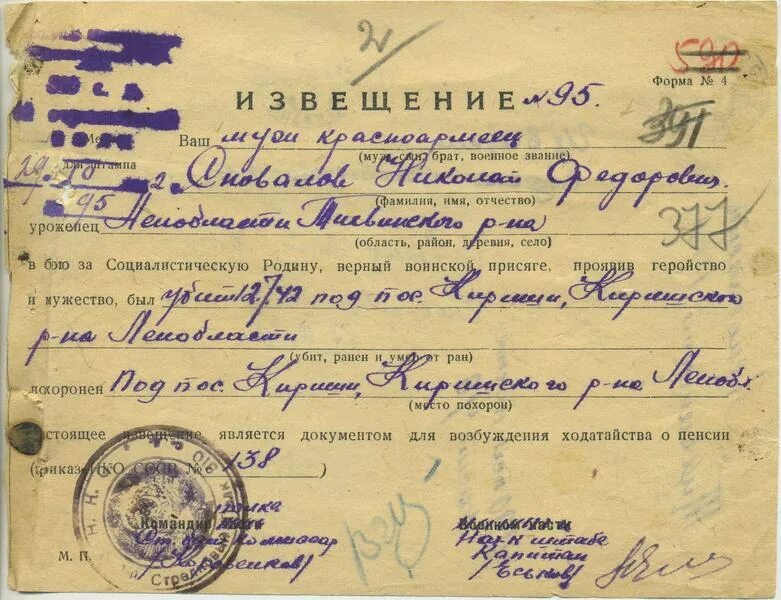 2
590
Форма № 4
ИЗВЕЩЕНИЕ № 95.
Место
для штампа
Ваш муж красноармеец
(муж, сын, брат, военное звание)
Николай Федорович
(фамилия, имя, отчество)
95
уроженец Ленобласти Тихвинского р-на
377
(область, район, деревня, село)
в бою за Социалистическую Родину, верный воинской присяге, проявив геройство
и мужество, был убит 12/7 42 под пос. Кириши, Киришского
р-на Ленобласти
(убит, ранен и умер от ран)
похоронен Под пос. Кириши, Киришского р-на Ленобл.
(место похорон)
Настоящее извещение является документом для возбуждения ходатайства о пенсии
(приказ НКО СССР № 138)
полка
Командир части
Военком части
Комиссар
Нач штаба
Капитан
/Еськов/
М. П.
Стрелковый